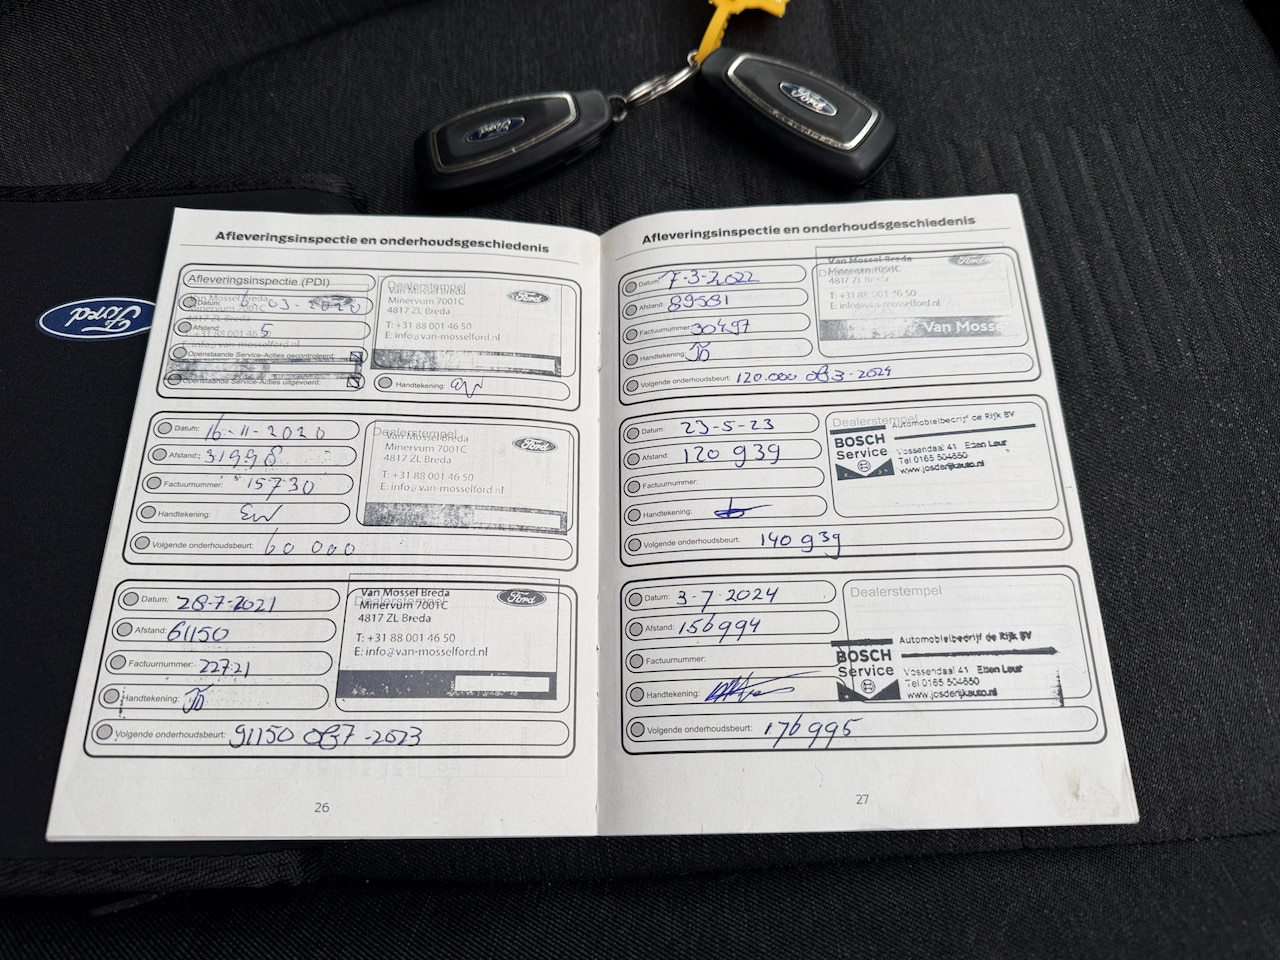 Ford
Ford
Ford
Afleveringsinspectie en onderhoudsgeschiedenis
Afleveringsinspectie (PDI)
Datum:
Afstand: 5
Openstaande Service-Acties gecontroleerd:
Openstaande Service-Acties uitgevoerd:
Dealerstempel
Van Mossel Breda
Minervum 7001C
4817 ZL Breda
T: +31 88 001 46 50
E: info@van-mosselford.nl
Ford
Handtekening:
Datum: 16-11-2020
Afstand: 31998
Factuurnummer: 15730
Handtekening:
Volgende onderhoudsbeurt: 60 000
Dealerstempel
Van Mossel Breda
Minervum 7001C
4817 ZL Breda
T: +31 88 001 46 50
E: info@van-mosselford.nl
Ford
Datum: 28-7-2021
Afstand: 61150
Factuurnummer: 22721
Handtekening:
Volgende onderhoudsbeurt: 91150 of 7-2023
Dealerstempel
Van Mossel Breda
Minervum 7001C
4817 ZL Breda
T: +31 88 001 46 50
E: info@van-mosselford.nl
Ford
26
Afleveringsinspectie en onderhoudsgeschiedenis
Datum: 7-3-2022
Afstand: 89581
Factuurnummer: 30497
Handtekening:
Volgende onderhoudsbeurt: 120.000 of 3-2024
Van Mossel Breda
Minervum 7001C
4817 ZL Breda
T: +31 88 001 46 50
Ford
Van Mosse
Datum: 23-5-23
Afstand: 120 939
Factuurnummer:
Handtekening:
Volgende onderhoudsbeurt: 140 939
Dealerstempel
Automobielbedrijf de Rijk BV
BOSCH
Service
Vossendaal 41 Etten Leur
Tel 0165 504650
www.josderijkauto.nl
Datum: 3-7-2024
Afstand: 156994
Factuurnummer:
Handtekening:
Volgende onderhoudsbeurt: 176995
Dealerstempel
Automobielbedrijf de Rijk BV
BOSCH
Service
Vossendaal 41 Etten Leur
Tel 0165 504650
www.josderijkauto.nl
27